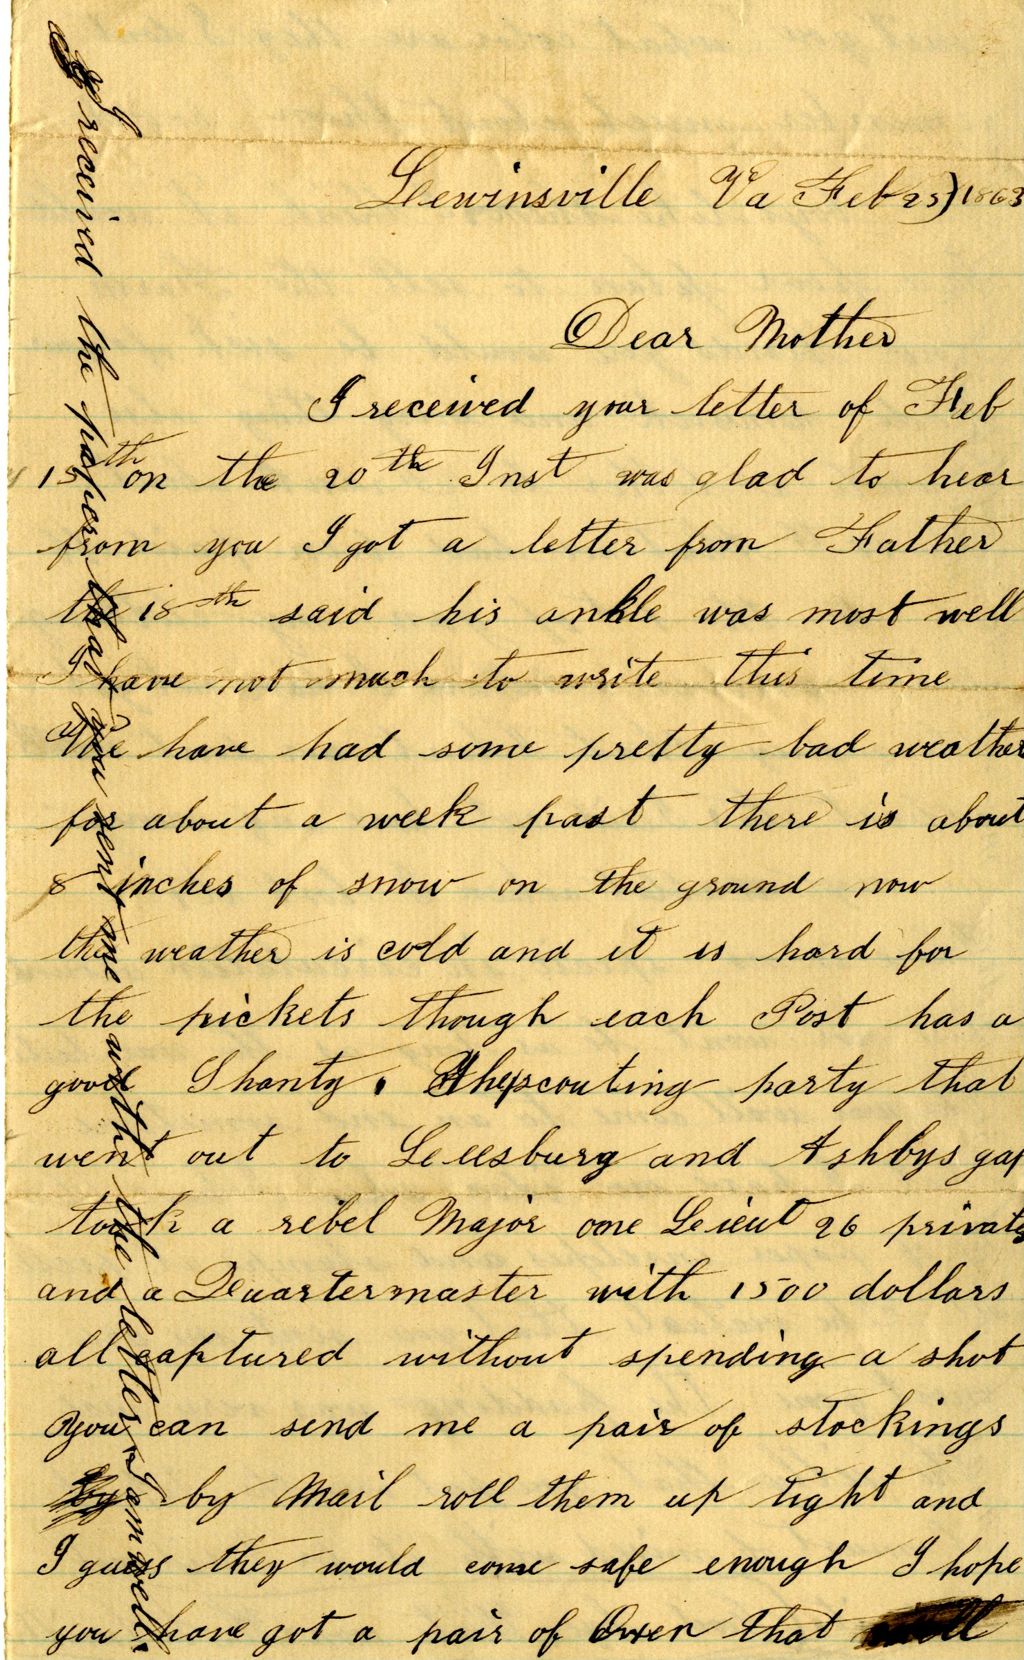 Lewinsville Va Feb 25) 1863
Dear Mother
I received your letter of Feb
15th on the 20th Inst was glad to hear
from you I got a letter from Father
the 18th said his ankle was most well
I have not much to write this time
We have had some pretty bad weather
for about a week past there is about
8 inches of snow on the ground now
the weather is cold and it is hard for
the pickets though each Post has a
good Shanty. The scouting party that
went out to Leesburg and Ashbys gap
took a rebel Major one Leieut 26 privats
and a Quartermaster with 1500 dollars
all captured without spending a shot
you can send me a pair of stockings
by by Mail roll them up tight and
I guess they would come safe enough I hope
you have got a pair of Oxen that
I received the papers that you sent me with the letter. I am well.